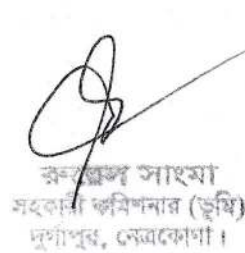 রুয়েল সাংমা
সহকারী কমিশনার (ভূমি)
দুর্গাপুর, নেত্রকোণা।